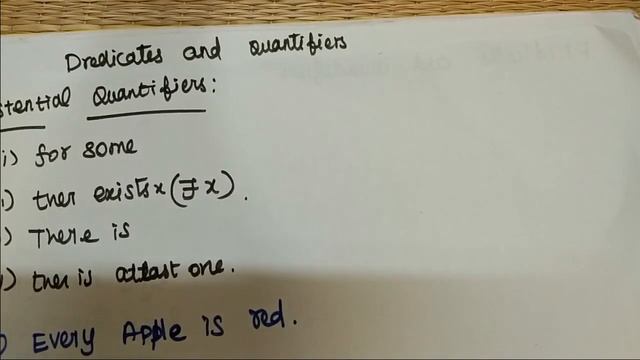 Predicates and quantifiers
stential Quantifiers:
i) for some
i) ther exists x (∃ x).
) There is
i) ther is atleast one.
) Every Apple is red.